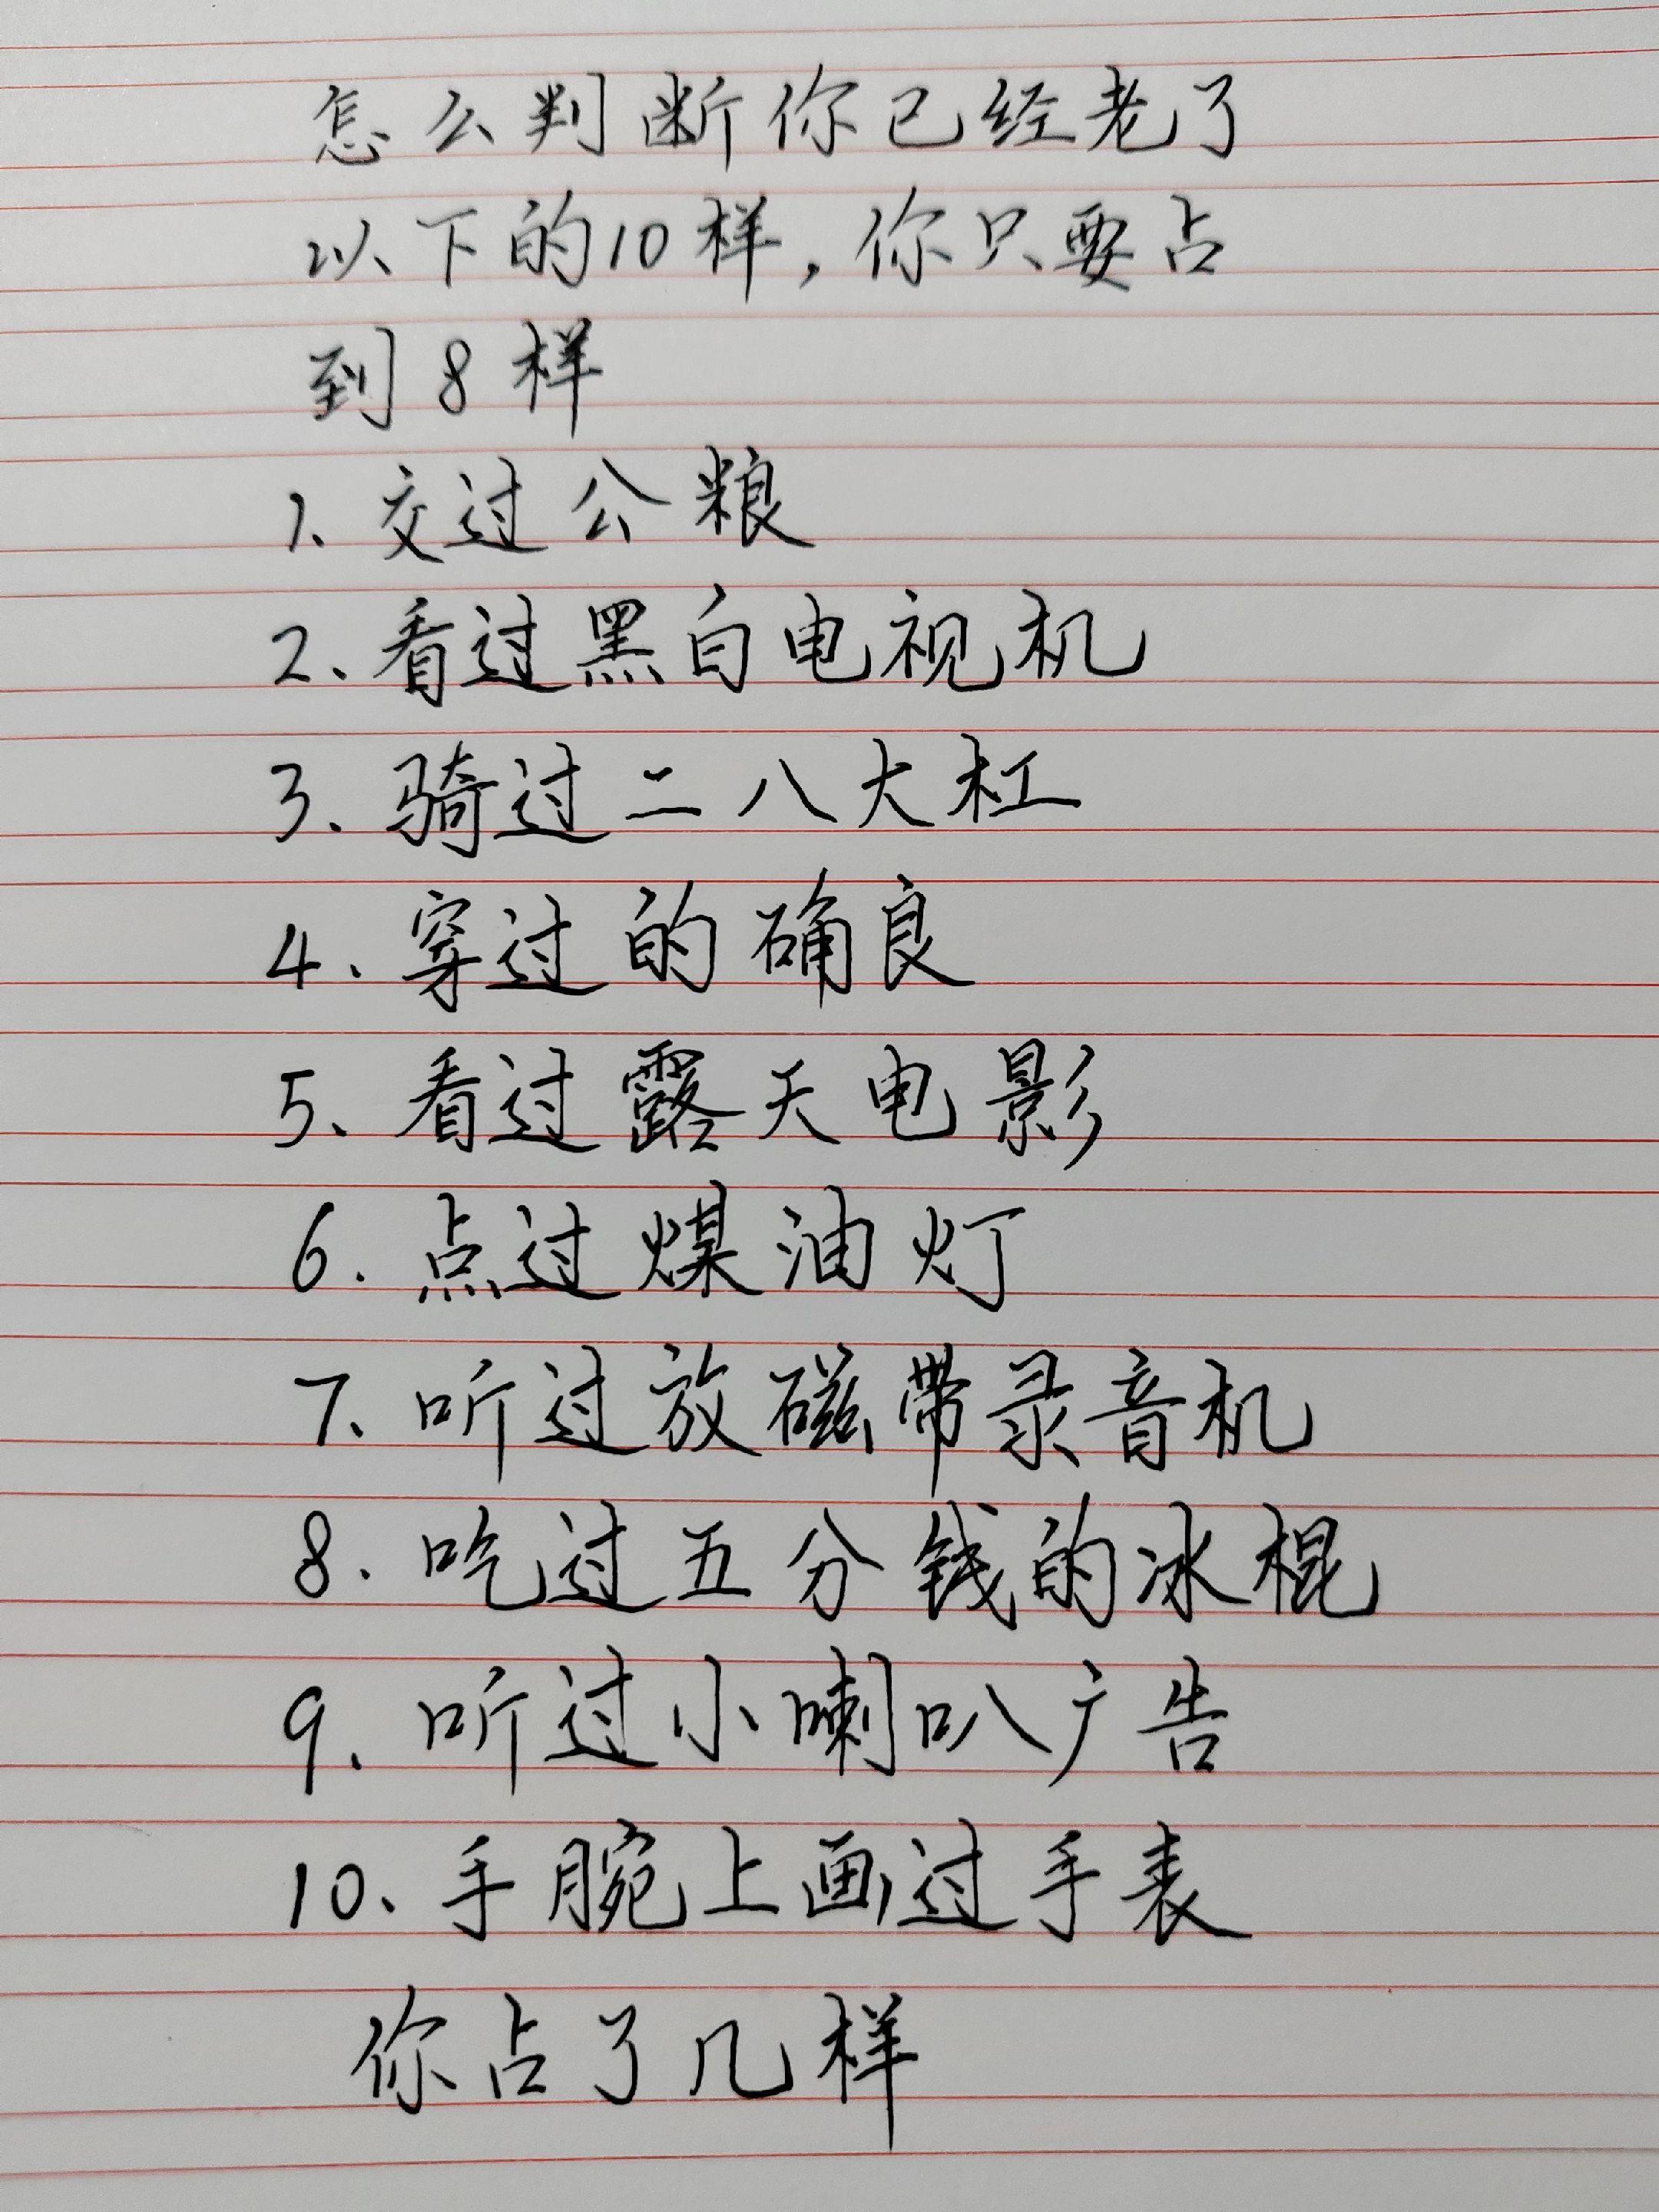 怎么判断你已经老了
以下的10样,你只要占
到8样
1、交过公粮
2、看过黑白电视机
3、骑过二八大杠
4、穿过的确良
5、看过露天电影
6.点过煤油灯
7、听过放磁带录音机
8.吃过五分钱的冰棍
9、听过小喇叭广告
10、手腕上画过手表
你占了几样